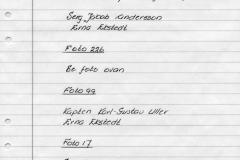 Serg Jacob Sandersson
Erna Ekstedt
Foto 22b
Se foto ovan
Foto 99
Kapten Karl-Gustav Uller
Erna Ekstedt
Foto 17